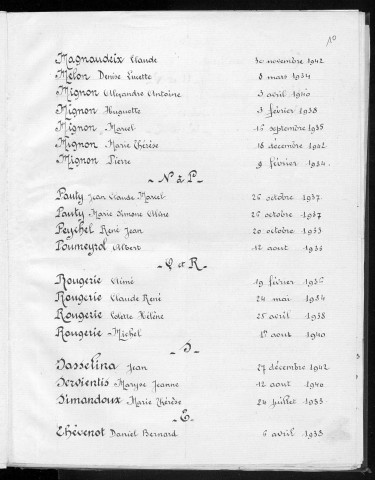 10
Magnaudeix Claude 30 novembre 1942
Melon Denise Lucette 8 mars 1934
Mignon Alexandre Antoine 3 avril 1940
Mignon Huguette 3 février 1938
Mignon Marcel 16 septembre 1935
Mignon Marie Thérèse 18 décembre 1942
Mignon Pierre 9 février 1934
- N à P -
Pauty Jean Claude Marcel 26 octobre 1937
Pauty Marie Simone 26 octobre 1937
Peychel René Jean 20 octobre 1933
Poumeyrol Albert 12 aout
- Q et R -
Rougerie Aimé 19 février 1936
Rougerie Claude René 24 mai 1934
Rougerie Colette Hélène 25 avril 1938
Rougerie Michel aout 1940
- S -
Sasselina Jean 27 décembre 1942
Serventis Maryse Jeanne 12 aout 1940
Simandoux Marie Thérèse 24 juillet 1935
- T -
Thévenot Daniel Bernard 6 avril 1935